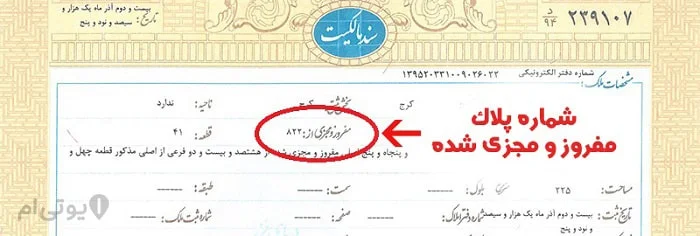 بیست و دوم آذر ماه یک هزار و
تاریخ: سیصد و نود و پنج
سند مالکیت
د ۹۴ ۲۳۹۱۰۷
شماره دفتر الکترونیکی: ۱۳۹۵۲۰۳۳۱۰۰۹۰۲۶۰۲۲
مشخصات ملک:
کرج بخش ثبتی: کرج ناحیه: ندارد
مفروز و مجزی از: ۸۲۲ قطعه: ۴۱
شماره پلاک
مفروز و مجزی شده
و پنجاه و پنج اصلی مفروز و مجزی شده از هشتصد و بیست و دو فرعی از اصلی مذکور قطعه چهل و
مساحت: ۲۲۵ بلوک: سمت: طبقه:
بیست و دوم آذر ماه یک هزار و سیصد و نود و پنج شماره دفتر املاک: صفحه: شماره ثبت ملک:
یوتی‌ام